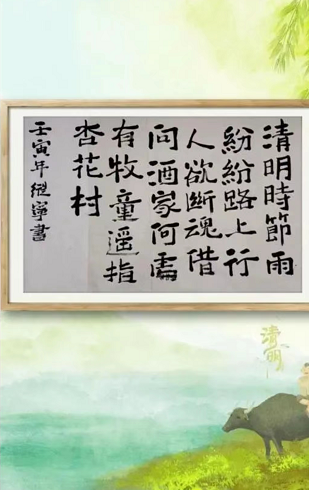 清明時節雨
紛紛路上行
人欲斷魂借
问酒家何處
有牧童遥指
杏花村
壬寅年继寧書
清明